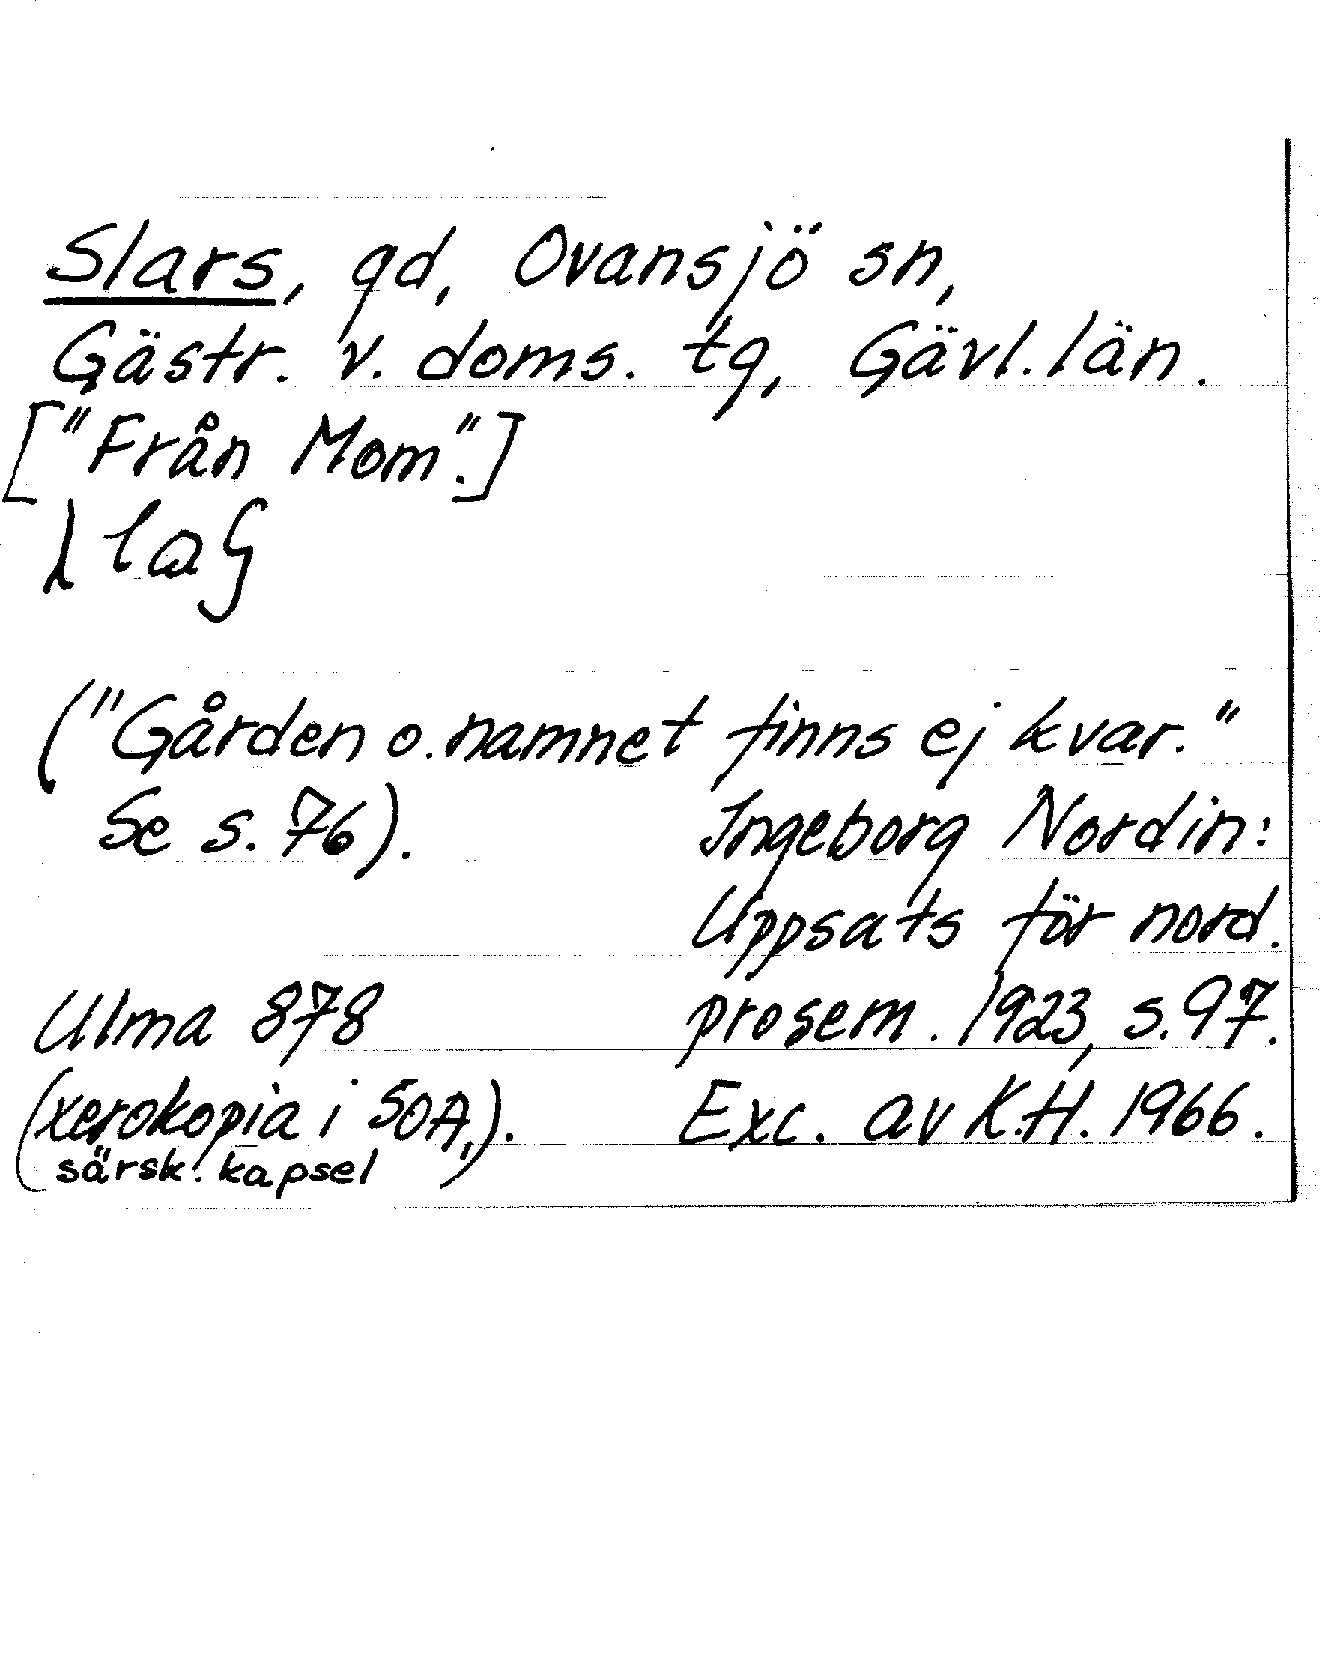 Slars, gd, Ovansjö sn,
Gästr. v. doms. tg, Gävl. län.
["Från Mom".]
("Gården o. namnet finns ej kvar."
Se s. 76).
Ingeborg Nordin:
Uppsats för nord.
prosem. 1923, s. 97.
Ulma 878
(xerokopia i SOA,).
särsk. kapsel
Exc. av K.H. 1966.